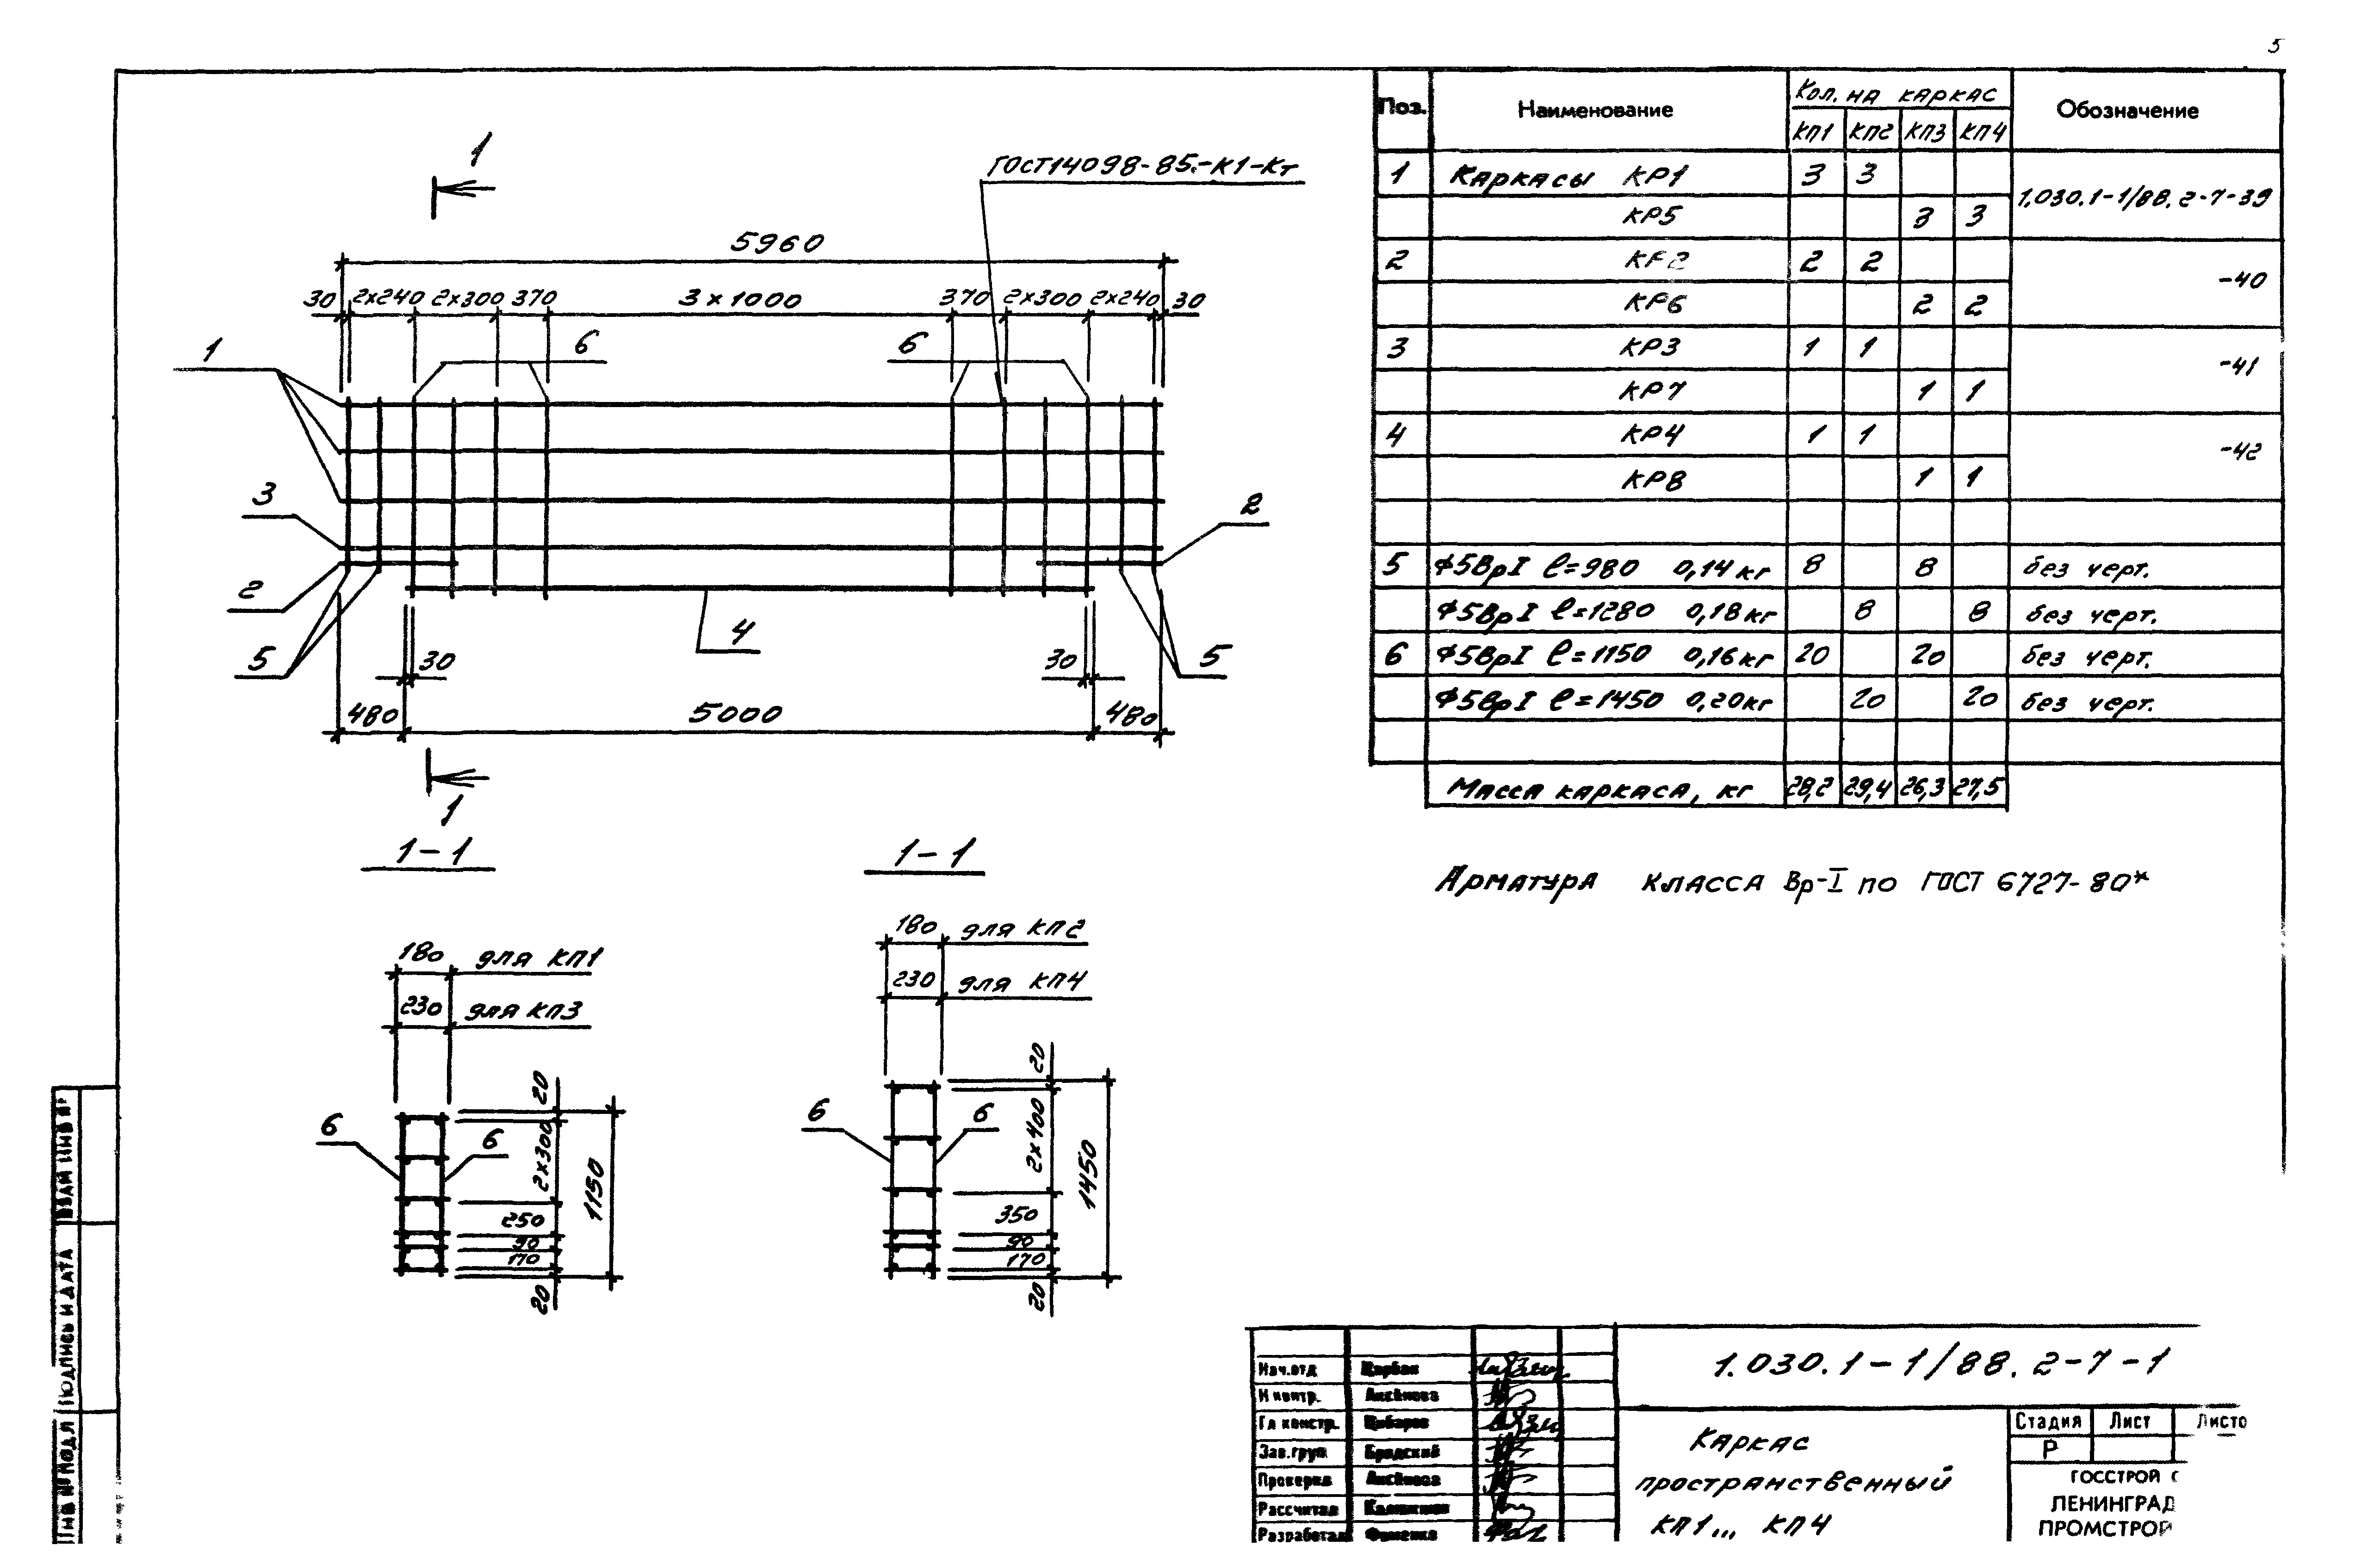 5
1
ГОСТ14098-85.-К1-Кт
5960
30 2х240 2х300 370 3х1000 370 2х300 2х240 30
6 6
1
3
2
2
5
4
5
30 30
480 5000 480
1
1-1
180 для КП1
230 для КП3
6 6
20
2х300
250
90
170
20
1150
1-1
180 для КП2
230 для КП4
6 6
20
2х400
350
90
170
20
1450
Поз. Наименование Кол. на каркас Обозначение
КП1 КП2 КП3 КП4
1 Каркасы КР1 3 3 1.030.1-1/88.2-7-39
КР5 3 3
2 КР2 2 2 -40
КР6 2 2
3 КР3 1 1 -41
КР7 1 1
4 КР4 1 1 -42
КР8 1 1
5 Ф5ВрI ℓ=980 0,14кг 8 8 без черт.
Ф5ВрI ℓ=1280 0,18кг 8 8 без черт.
6 Ф5ВрI ℓ=1150 0,16кг 20 20 без черт.
Ф5ВрI ℓ=1450 0,20кг 20 20 без черт.
Масса каркаса, кг 28,2 29,4 26,3 27,5
Арматура класса Вр-I по ГОСТ 6727-80*
Нач.отд
Н контр. Аксёнова
Гл констр.
Зав.груп Бродский
Проверил Аксёнова
Рассчитал
Разработал Фоменко
1.030.1-1/88.2-7-1
Каркас
пространственный
КП1... КП4
Стадия Лист Листо
Р
ГОССТРОЙ С
ЛЕНИНГРАД
ПРОМСТРОЙ
ВЗАМ ИНВ №
Подпись и дата
Инв № подл